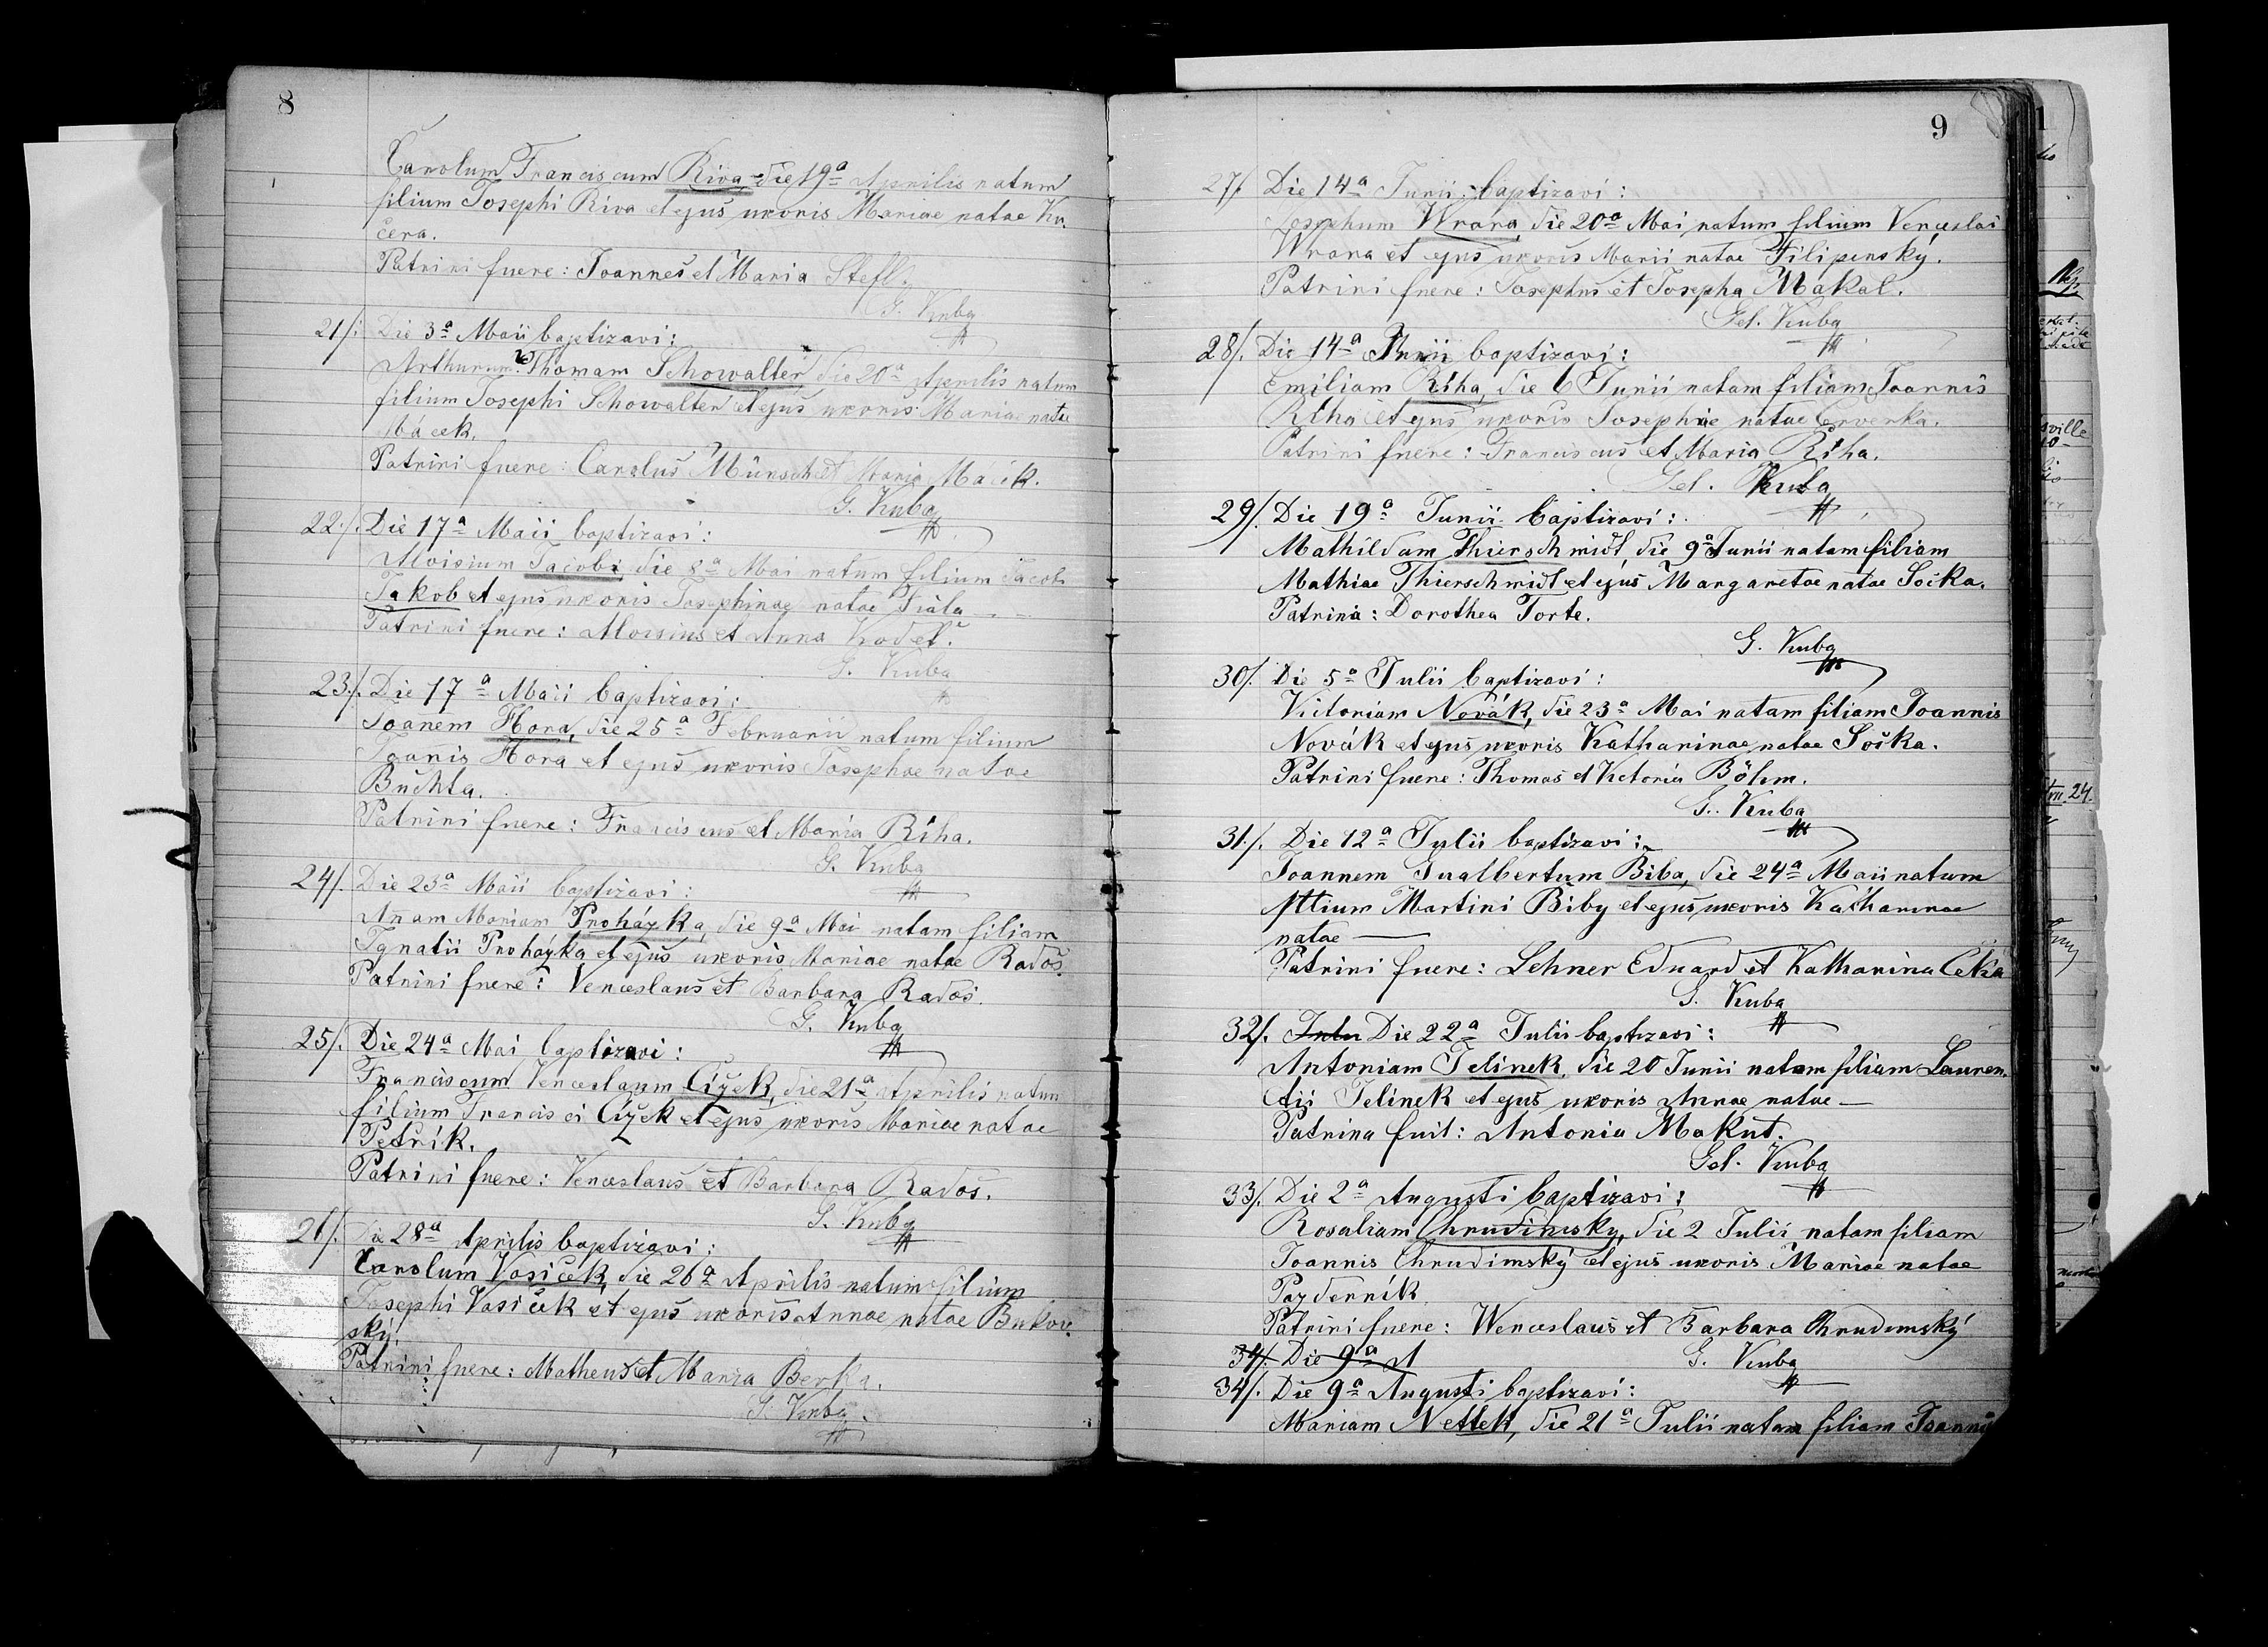 8
Carolum Franciscum Riva die 19ª Aprilis natum
filium Josephi Riva et ejus uxoris Mariae natae Ku-
čera.
Patrini fuere: Joannes et Maria Stefl.
G. Kuba
21/. Die 3ª Maii baptizavi:
Arthurum Thomam Schowalter die 20ª Aprilis natum
filium Josephi Schowalter et ejus uxoris Mariae natae
Patrini fuere: Carolus Münsch et Maria
G. Kuba
22./. Die 17ª Maii baptizavi:
Aloisium Jacobi die 8ª Mai natum filium Jacob
Jakob et ejus uxoris Josephinae natae Fiala
Patrini fuere: Aloisius et Anna
G. Kuba
23./. Die 17ª Maii baptizavi:
Joanem Hora, die 25ª Februarii natum filium
Joanis Hora et ejus uxoris Josephae natae
Buchta.
Patrini fuere: Franciscus et Maria Řiha.
G. Kuba
24/. Die 23ª Maii baptizavi:
Anam Mariam Proházka, die 9ª Mai natam filiam
Ignatii Proházka et ejus uxoris Mariae natae Radoš.
Patrini fuere: Venceslaus et Barbara Radoš.
G. Kuba
25/. Die 24ª Mai baptizavi:
Franciscum Venceslaum Čížek, die 21ª Aprilis natum
filium Francisci Čížek et ejus uxoris Mariae natae
Petrík.
Patrini fuere: Venceslaus et Barbara Radoš.
G. Kuba
26/. Die 28ª Aprilis baptizavi:
Carolum Vasiček, die 26ª Aprilis natum filium
Josephi Vasiček et ejus uxoris Annae natae Bukov-
ský.
Patrini fuere: Matheus et Maria Berka.
G. Kuba.
9
27/. Die 14ª Junii baptizavi:
Josephum Wrana, die 20ª Mai natum filium Venceslai
Wrana et ejus uxoris Marii natae Filipenský.
Patrini fuere: Josephus et Josepha Makal.
Gel. Kuba
28/. Die 14ª Junii baptizavi:
Emiliam Řiha, die 6 Junii natam filiam Joannis
Řiha et ejus uxoris Josephae natae Červenka.
Patrini fuere: Franciscus et Maria Řiha.
Gel. Kuba
29/. Die 19ª Junii baptizavi:
Mathildam Thierschmidt, die 9ª Junii natam filiam
Mathiae Thierschmidt et ejus Margaretae natae Soška.
Patrina: Dorothea Torte.
G. Kuba
30/. Die 5ª Julii baptizavi:
Victoriam Novák, die 23ª Mai natam filiam Joannis
Novák et ejus uxoris Katharinae natae Soška.
Patrini fuere: Thomas et Victoria Böhm.
G. Kuba
31./. Die 12ª Julii baptizavi:
Joannem Gualbertum Biba, die 24ª Maii natum
filium Martini Biby et ejus uxoris Katharinae
natae —
Patrini fuere: Lehner Eduard et Katharina
G. Kuba
32/. Die 22ª Julii baptizavi:
Antoniam Jelinek, die 20 Junii natam filiam Lauren-
tii Jelinek et ejus uxoris Annae natae —
Patrina fuit: Antonia Makut.
Gel. Kuba
33/. Die 2ª Augusti baptizavi:
Rosaliam Chrudimsky, die 2 Julii natam filiam
Joannis Chrudimský et ejus uxoris Mariae natae
Pazderník
Patrini fuere: Wenceslaus et Barbara Chrudimský
34/. Die 9ª A
G. Kuba
34/. Die 9ª Augusti baptizavi:
Mariam Nettek, die 21ª Julii natam filiam Joannis